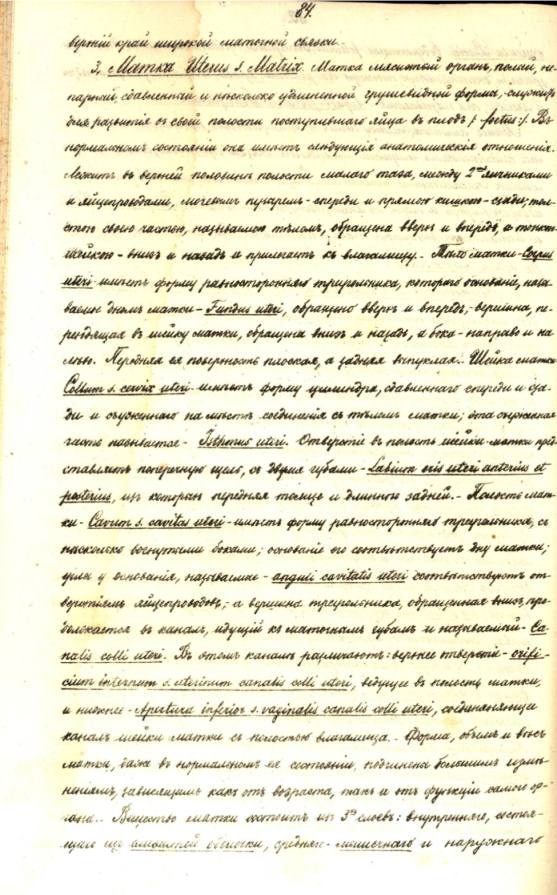 84.
верхній край широкой маточной связки.
3, Матка Uterus s. Matrix. Матка мясистой органъ, полой, не-
парной, сдавленной и нѣсколько удлиненной грушевидной формы, служитъ
для развитія въ своей полости поступившаго яйца въ плодъ /: foetus :/. Въ
нормальномъ состояніи она имѣетъ слѣдующія анатомическія отношенія.
Лежитъ въ верхней половинѣ полости малаго таза, между 2мя яичниками
и яйцепроводами, мочевымъ пузыремъ - спереди и прямою кишкою - сзади; тол-
стою своею частью, называемою тѣломъ, обращена вверхъ и впередъ, а тонкою
шейкою - внизъ и назадъ и прилегаетъ къ влагалищу. - Тѣло матки - Corpus
uteri - имѣетъ форму равносторонняго треугольника, котораго основаніе, назы-
ваемое дномъ матки - Fundus uteri, обращено вверхъ и впередъ, - вершина, пе-
реходящая въ шейку матки, обращена внизъ и назадъ, а бока - направо и на-
лѣво. Передняя ея поверхность плоская, а задняя выпуклая. Шейка матки
Collum s. cervix uteri - имѣетъ форму цилиндра, сдавленнаго спереди и сза-
ди и съуженнаго на мѣстѣ соединенія съ тѣломъ матки; эта съуженная
часть называется - Isthmus uteri. Отверстіе въ полость шейки матки пред-
ставляетъ поперечную щель, съ двумя губами - Labium oris uteri anterius et
posterius, изъ которыхъ передняя толще и длиннѣе задней. - Полость мат-
ки - Cavum s. cavitas uteri - имѣетъ форму равносторонняго треугольника, съ
нѣсколько вогнутыми боками; основаніе его соотвѣтствуетъ дну матки;
углы у основанія, называемые - anguli cavitatis uteri соотвѣтствуютъ от-
верстіямъ яйцепроводовъ; а вершина треугольника, обращенная внизъ, про-
должается въ каналъ, идущій къ маточнымъ губамъ и называемый - Ca-
nalis colli uteri. Въ этомъ каналѣ различаютъ: верхнее отверстіе - orifi-
cium internum s. uterinum canalis colli uteri, ведущее въ полость матки,
и нижнее - Apertura inferior s. vaginalis canalis colli uteri, соединяющее
каналъ шейки матки съ полостью влагалища. - Форма, объемъ и вѣсъ
матки, даже въ нормальномъ ея состояніи, подчинены большимъ измѣ-
неніямъ, зависящимъ какъ отъ возраста, такъ и отъ функціи самого ор-
гана. - Вещество матки состоитъ изъ 3хъ слоевъ: внутренняго, состоя-
щаго изъ слизистой оболочки, средняго - мышечнаго и наружнаго